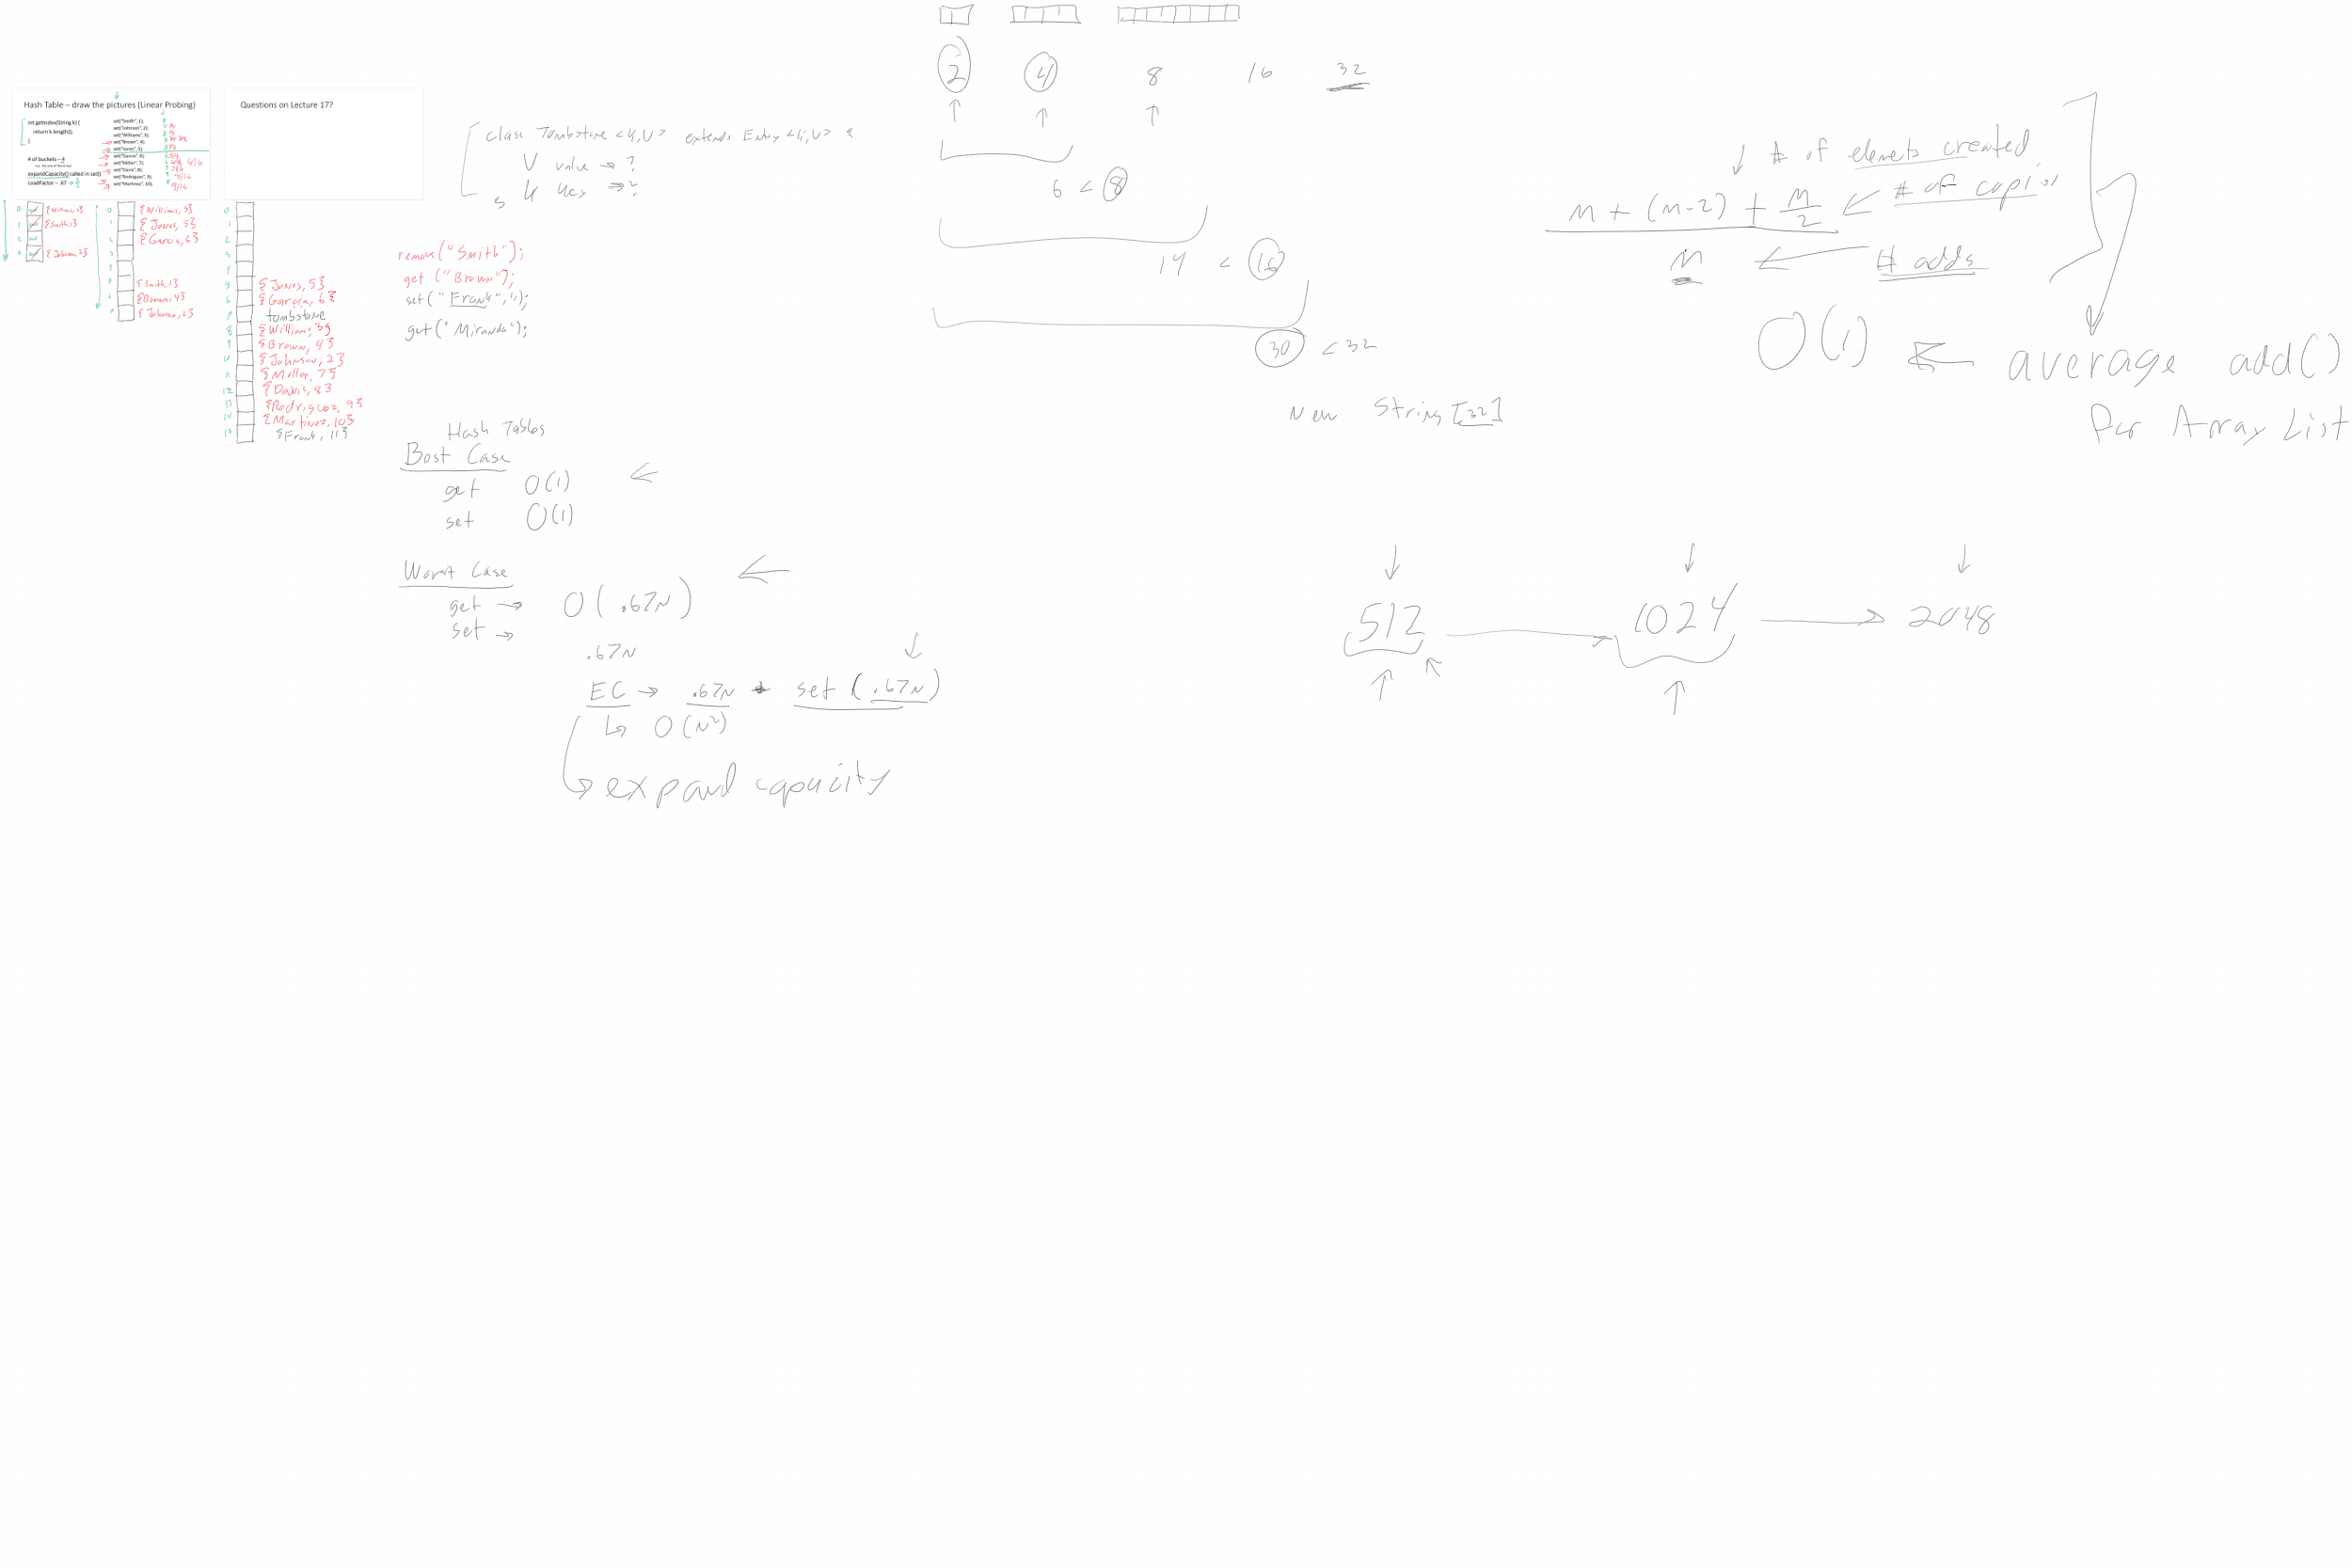 Hash Table – draw the pictures (Linear Probing)
int getIndex(String k) {
return k.length();
}
# of buckets – 4
(i.e. the size of the array)
expandCapacity() called in set()
LoadFactor – .67 → 2/3
set("Smith", 1);
set("Johnson", 2);
set("Williams", 3);
set("Brown", 4);
set("Jones", 5);
set("Garcia", 6);
set("Miller", 7);
set("Davis", 8);
set("Rodriguez", 9);
set("Martinez", 10);
Questions on Lecture 17?
0 {Williams, 3}
1 {Smith, 1}
2
3 {Johnson 2}
0 {Williams, 3}
1 {Jones, 5}
2 {Garcia, 6}
3
4
5 {Smith, 1}
6 {Brown, 4}
7 {Johnson, 2}
0
1
2
3
4
5 {Jones, 5}
6 {Garcia, 6}
7 tombstone
8 {Williams, 3}
9 {Brown, 4}
10 {Johnson, 2}
11 {Miller, 7}
12 {Davis, 8}
13 {Rodriguez, 9}
14 {Martinez, 10}
{Frank, 11}
class Tombstone <K,V> extends Entry <K,V> {
V value → ?
K key → ?
}
remove("Smith");
get ("Brown");
set("Frank", 11);
get("Miranda");
Hash Tables
Best Case
get O(1) ←
set O(1)
Worst Case ←
get → O(.67N)
set →
.67N
EC → .67N * set (.67N)
↳ O(N²)
↳ expand capacity
2 4 8 16 32
6 < 8
14 < 16
30 < 32
New String[32]
↓ # of elements created
n + (n-2) + n/2 ← # of copies
n ← # adds
O(1) ← average add()
for Array List
512 → 1024 → 2048